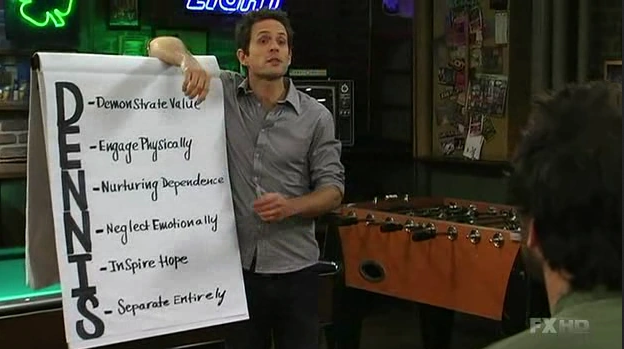 EIGHT
DENNIS
- Demonstrate Value
- Engage Physically
- Nurturing Dependence
- Neglect Emotionally
- Inspire Hope
- Separate Entirely
FXHD